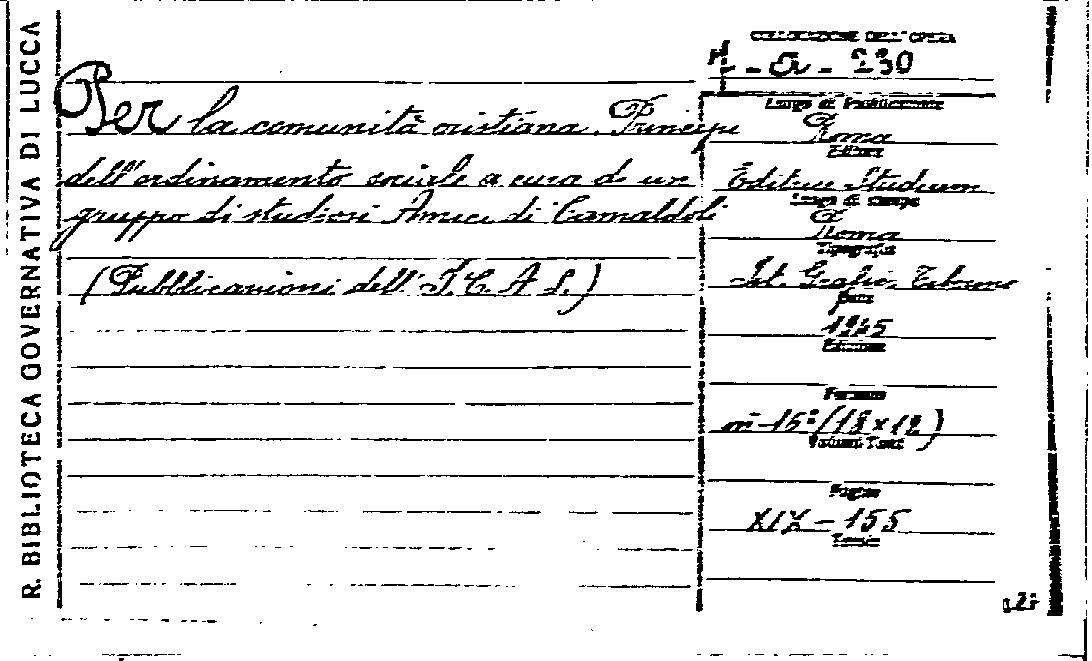 R. BIBLIOTECA GOVERNATIVA DI LUCCA
Per la comunità cristiana. Principi
dell'ordinamento sociale a cura di un
gruppo di studiosi Amici di Camaldoli
(Pubblicazioni dell' I. C. A. S.)
COLLOCAZIONE DELL'OPERA
- a - 230
Luogo di Pubblicazione
Roma
Editore
Editrice Studium
Luogo di stampa
Roma
Tipografia
Ist. Grafic. Tiberino
Data
1945
Edizione
Formato
in-16° (18 x 12)
Volumi Tomi
Pagine
XIX - 155
Tavole